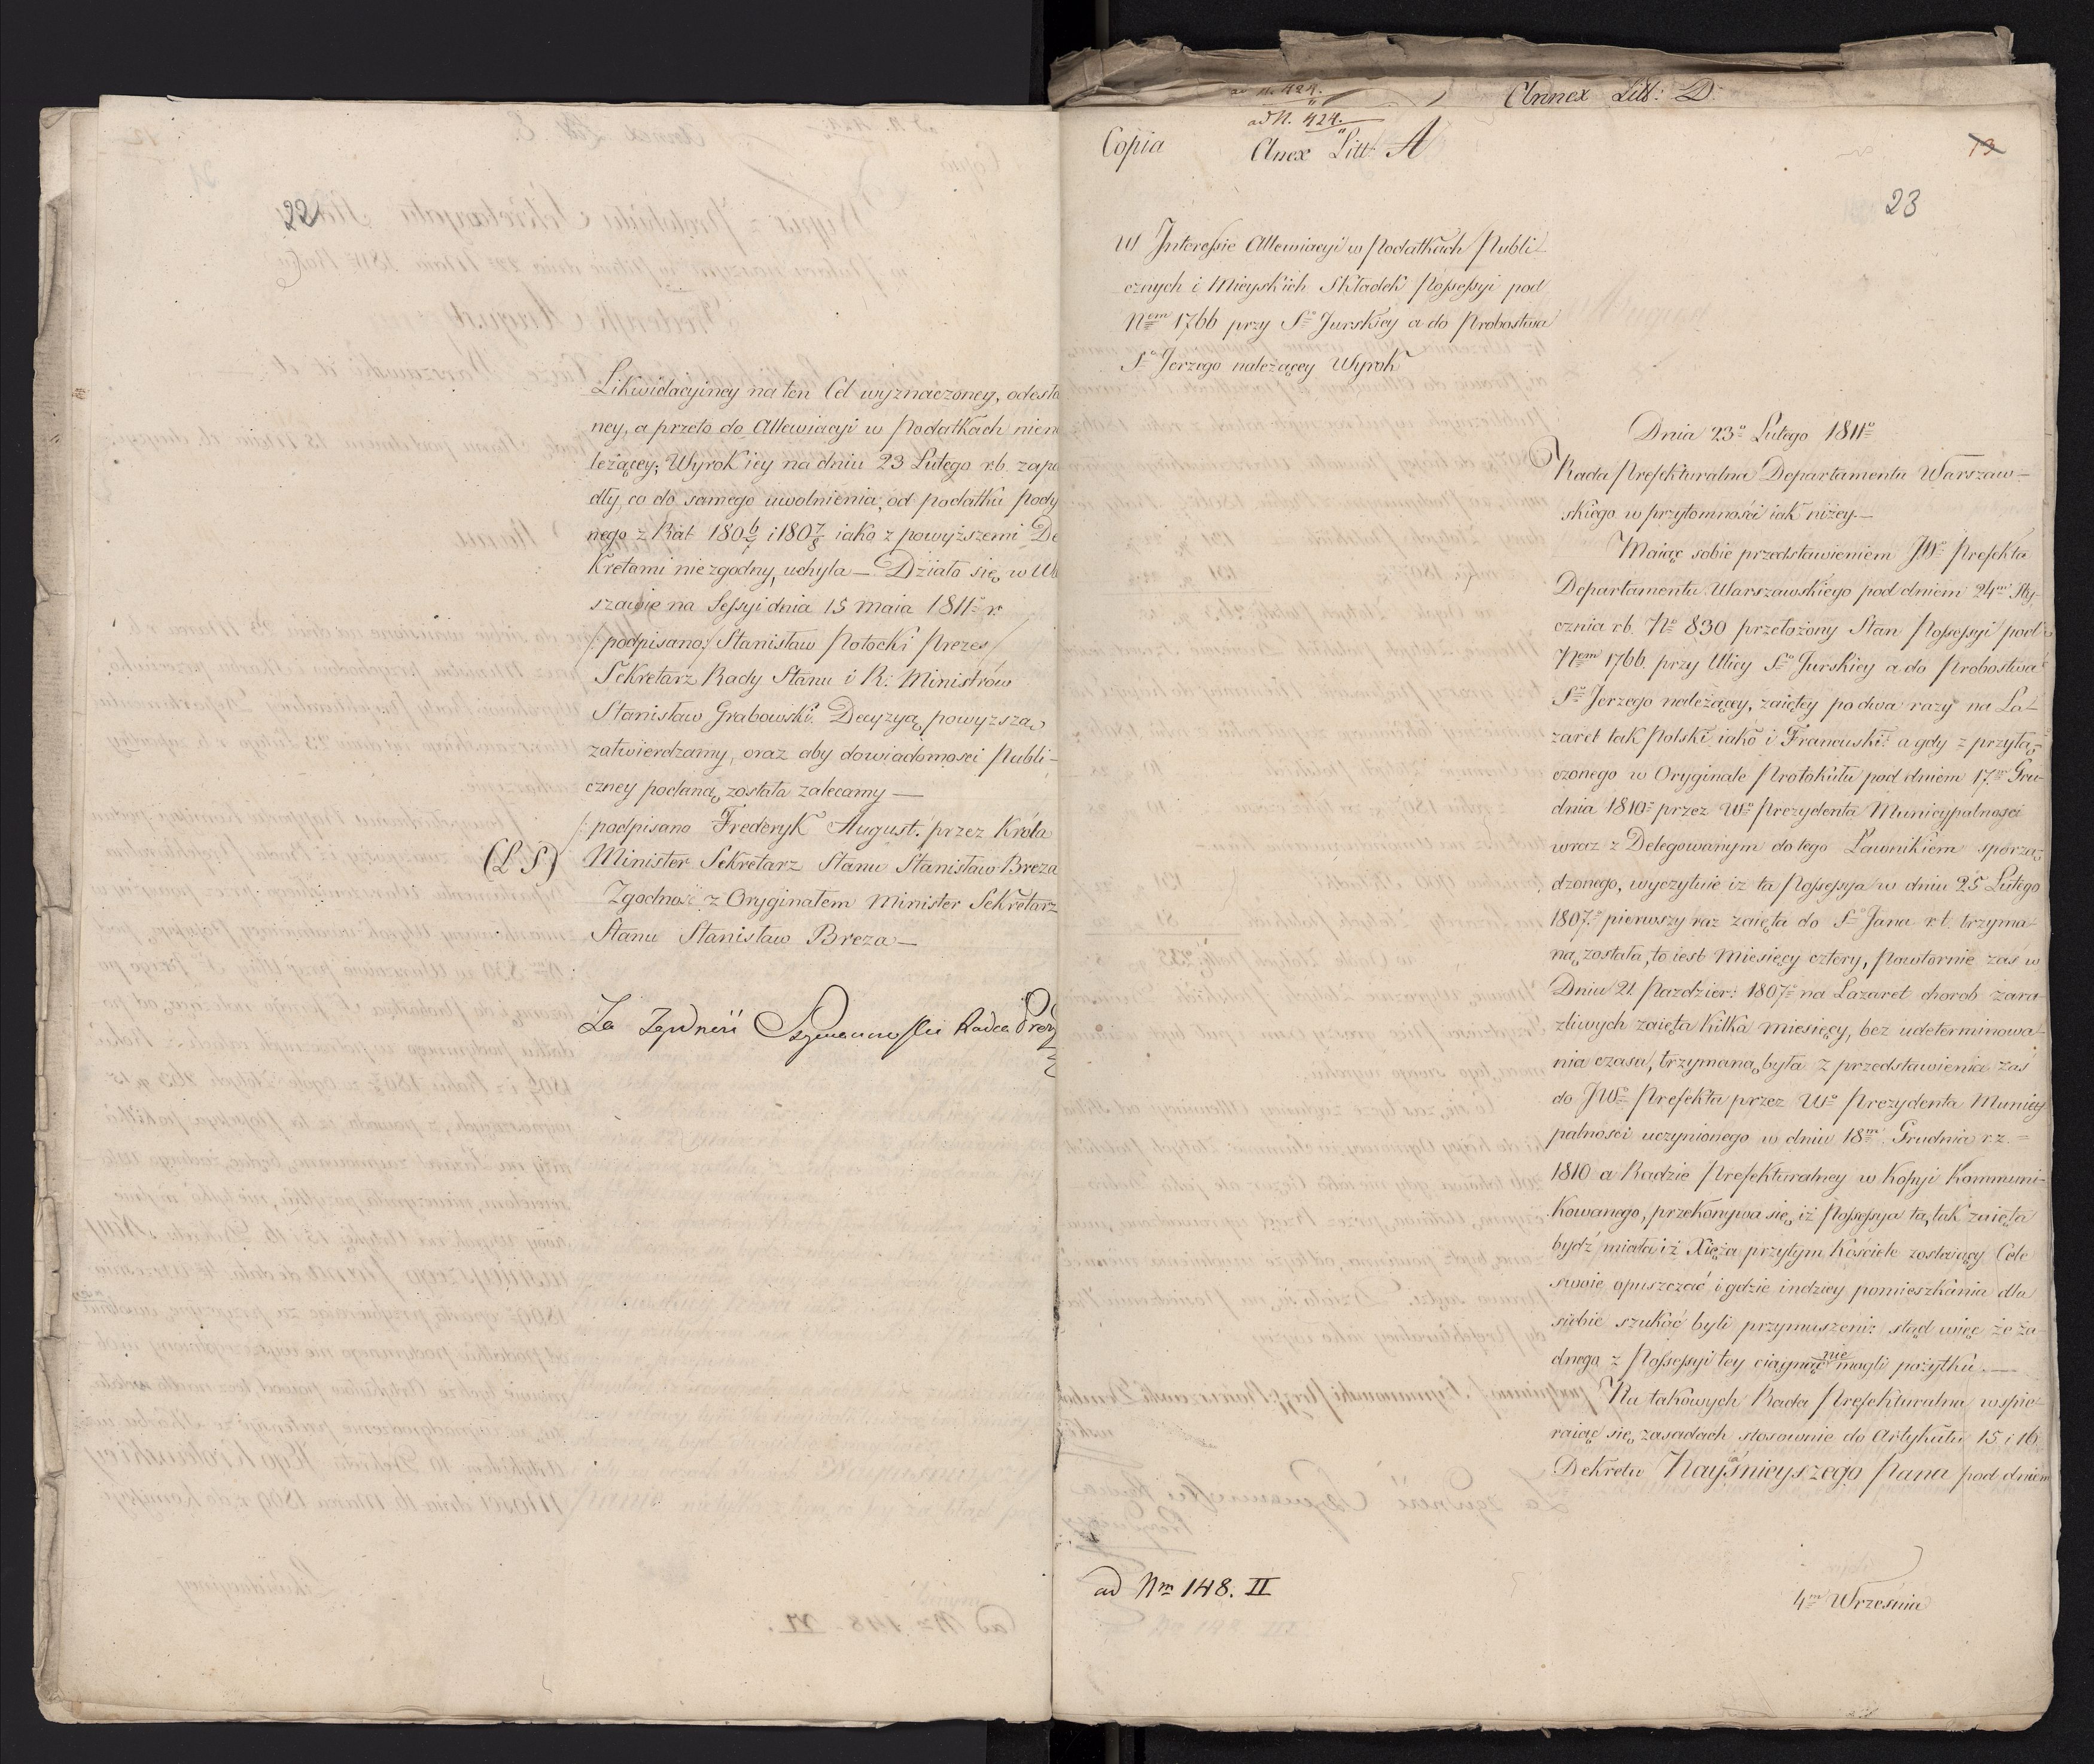 22
Likwidacyiney na ten Cel wyznaczoney, odesła
ney, a przeto do Allewiacyi w Podatkach nien
leżącey; Wyrok iey na dniu 23 Lutego r.b. zapa
dły, co do samego uwolnienia, od podatku Pody
nego z Rat 180 6/7 i 180 7/8 iako z powyższemi De
kretami niezgodny, uchyla — Działo się, w Wa
szawie na Sessyi dnia 15 Maia 1811º r.
/:podpisano:/ Stanisław Potocki Prezes/
Sekretarz Rady Stanu i R: Ministrów
Stanisław Grabowski. Decyzyą, powyższą,
zatwierdzamy, oraz aby do wiadomosci Publi-
czney podaną, została zalecamy —
/: podpisano Fryderyk August. przez Króla
(L S) Minister Sekretarz Stanu Stanisław Breza
Zgodność z Oryginałem Minister Sekretarz
Stanu Stanisław Breza —
Za Zgodność Szymanowski Radca Prez
ad N. 424.
Annex Litt: D.
ad N. 424.
Copia Anex Litt: A
13
23
W Interessie Allewiacyi w Podatkach Publi-
cznych i Mieyskich Składek Possessyi pod
Nem 1766 przy Sto Jurskiey a do Probostwa
Sgo Jerzego należącey Wyrok
Dnia 23º Lutego 1811º
Rada Prefekturalna Departamentu Warszaw-
skiego w przytomności iak niżey —
Maiąc sobie przedstawieniem JWº Prefekta
Departamentu Warszawskiego pod dniem 24m Sty-
cznia r.b. Nº 830 przełożony Stan Possessyi pod
Nem 1766 przy Ulicy Sto Jurskiey a do Probostwa
Sgo Jerzego należącey, zaiętey po dwa razy na La-
zaret tak Polski iako i Francuski: a gdy z przyłą-
czonego w Oryginale Protokułu pod dniem 17m Gru-
dnia 1810º przez Wº Prezydenta Municypalnosci
wraz z Delegowanym do tego Ławnikiem sporzą-
dzonego, wyczytuie iż ta Possessya w dniu 25 Lutego
1807º pierwszy raz zaięta do Sº Jana r.t. trzyma-
ną, została, to iest Miesięcy cztery, powtórnie zaś w
Dniu 21 Pazdzier: 1807º na Lazaret chorob zara-
zliwych zaięta kilka miesięcy, bez udeterminowa-
nia czasu, trzymaną, była z przedstawienia zaś
do JWº Prefekta przez Wº Prezydenta Municy
palności uczynionego w dniu 18m Grudnia r.z. =
1810 a Radzie Prefekturalney w Kopyi Kommuni-
kowanego, przekonywa się, iż Possessya ta, tak zaięta
bydź miała iż Xięża przytym Kościele zostaiący Cele
swoie opuszczać i gdzie indziey pomieszkania dla
siebie szukać byli przymuszeni: stąd więc że ża-
dnego z Possessyi tey ciągnąć nie mogli pożytku. —
Na takowych Rada Prefekturalna wspie-
raiąc się, zasadach stosownie do Artykułu 15 i 16
Dekretu Nayiaśnieyszego Pana pod dniem
ad Nm 148. II
4m Września